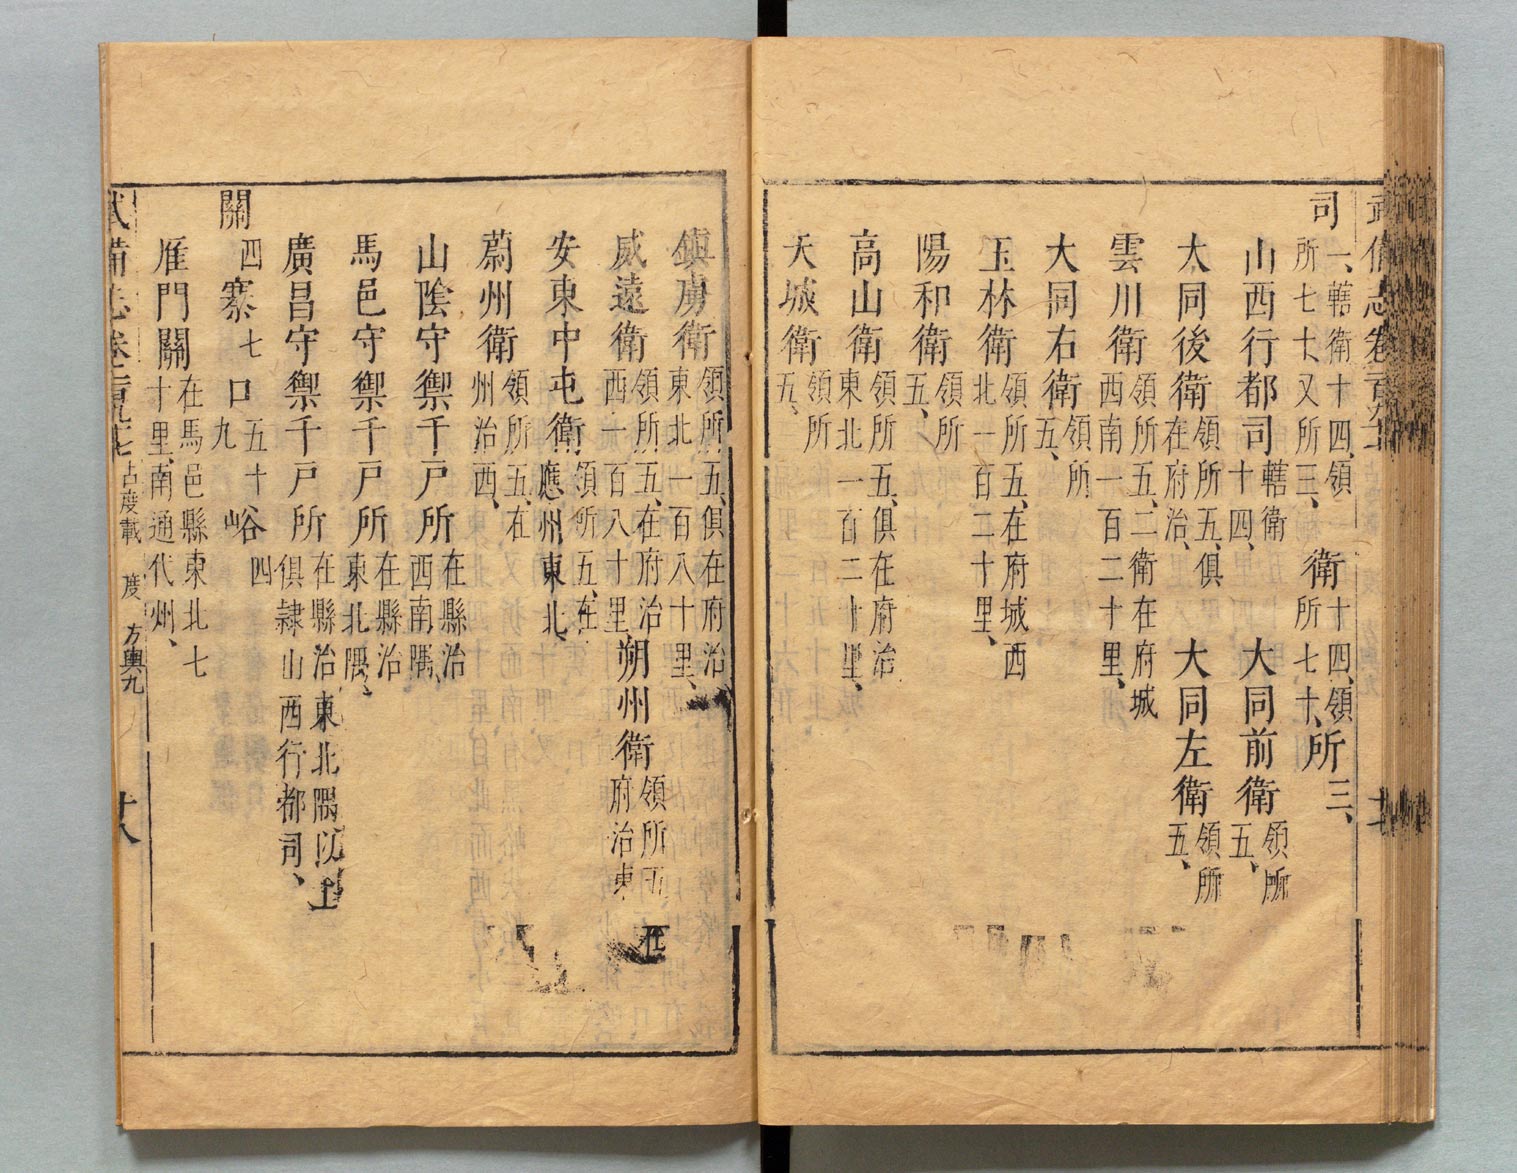 司一、轄衛十四、領所七十、又所三、衛十四、領所七十、所三、
山西行都司轄衛十四、大同前衛領所五、
大同後衛領所五、俱在府治、大同左衛領所五、
雲川衛領所五、二衛在府城西南一百二十里、
大同右衛領所五、
玉林衛領所五、在府城西北一百二十里、
陽和衛領所五、
高山衛領所五、俱在府治東北一百二十里、
天城衛領所五、
鎮虜衛領所五、俱在府治東北一百八十里、
威遠衛領所五、在府治西一百八十里、朔州衛領所五在府治東
安東中屯衛領所五、在應州東北、
蔚州衛領所五、在州治西、
山陰守禦千戶所在縣治西南隅、
馬邑守禦千戶所在縣治東北隅、
廣昌守禦千戶所在縣治東北隅以上俱隸山西行都司、
關四寨七口五十九峪四
雁門關在馬邑縣東北七十里、南通代州、
武備志卷一百九十七 占度載 度 方輿九 十八